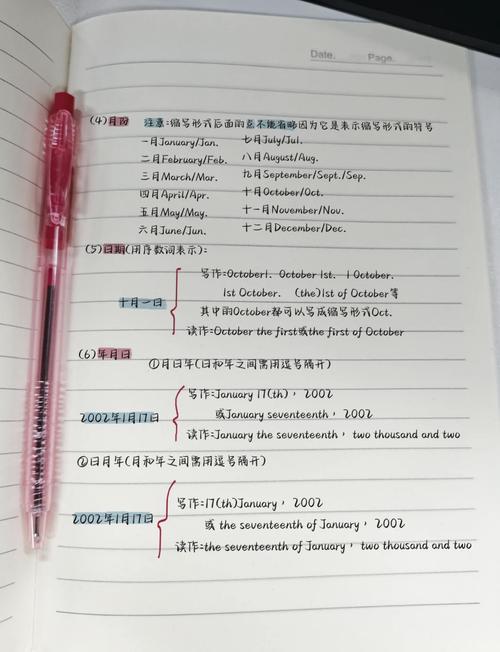 Date. Page.
(4)月份 注意:缩写形式后面的点不能省略因为它是表示缩写形式的符号
一月January/Jan. 七月July/Jul.
二月February/Feb. 八月August/Aug.
三月March/Mar. 九月September/Sept./Sep.
四月April/Apr. 十月October/Oct.
五月May/May. 十一月November/Nov.
六月June/Jun. 十二月December/Dec.
(5)日期(用序数词表示):
写作:October1. October 1st. 1 October.
十月一日
1st October. (the)1st of October等
其中雨October都可以写成缩写形式Oct.
读作:October the first或the first of October
(6)年月日
①月日年(日和年之间需用逗号隔开)
写作:January 17(th), 2002
2002年1月17日
或January seventeenth, 2002
读作:January the seventeenth, two thousand and two
②日月年(月和年之间需用逗号隔开)
写作:17(th)January, 2002
2002年1月17日
或 the seventeenth of January, 2002
读作:the seventeenth of January, two thousand and two